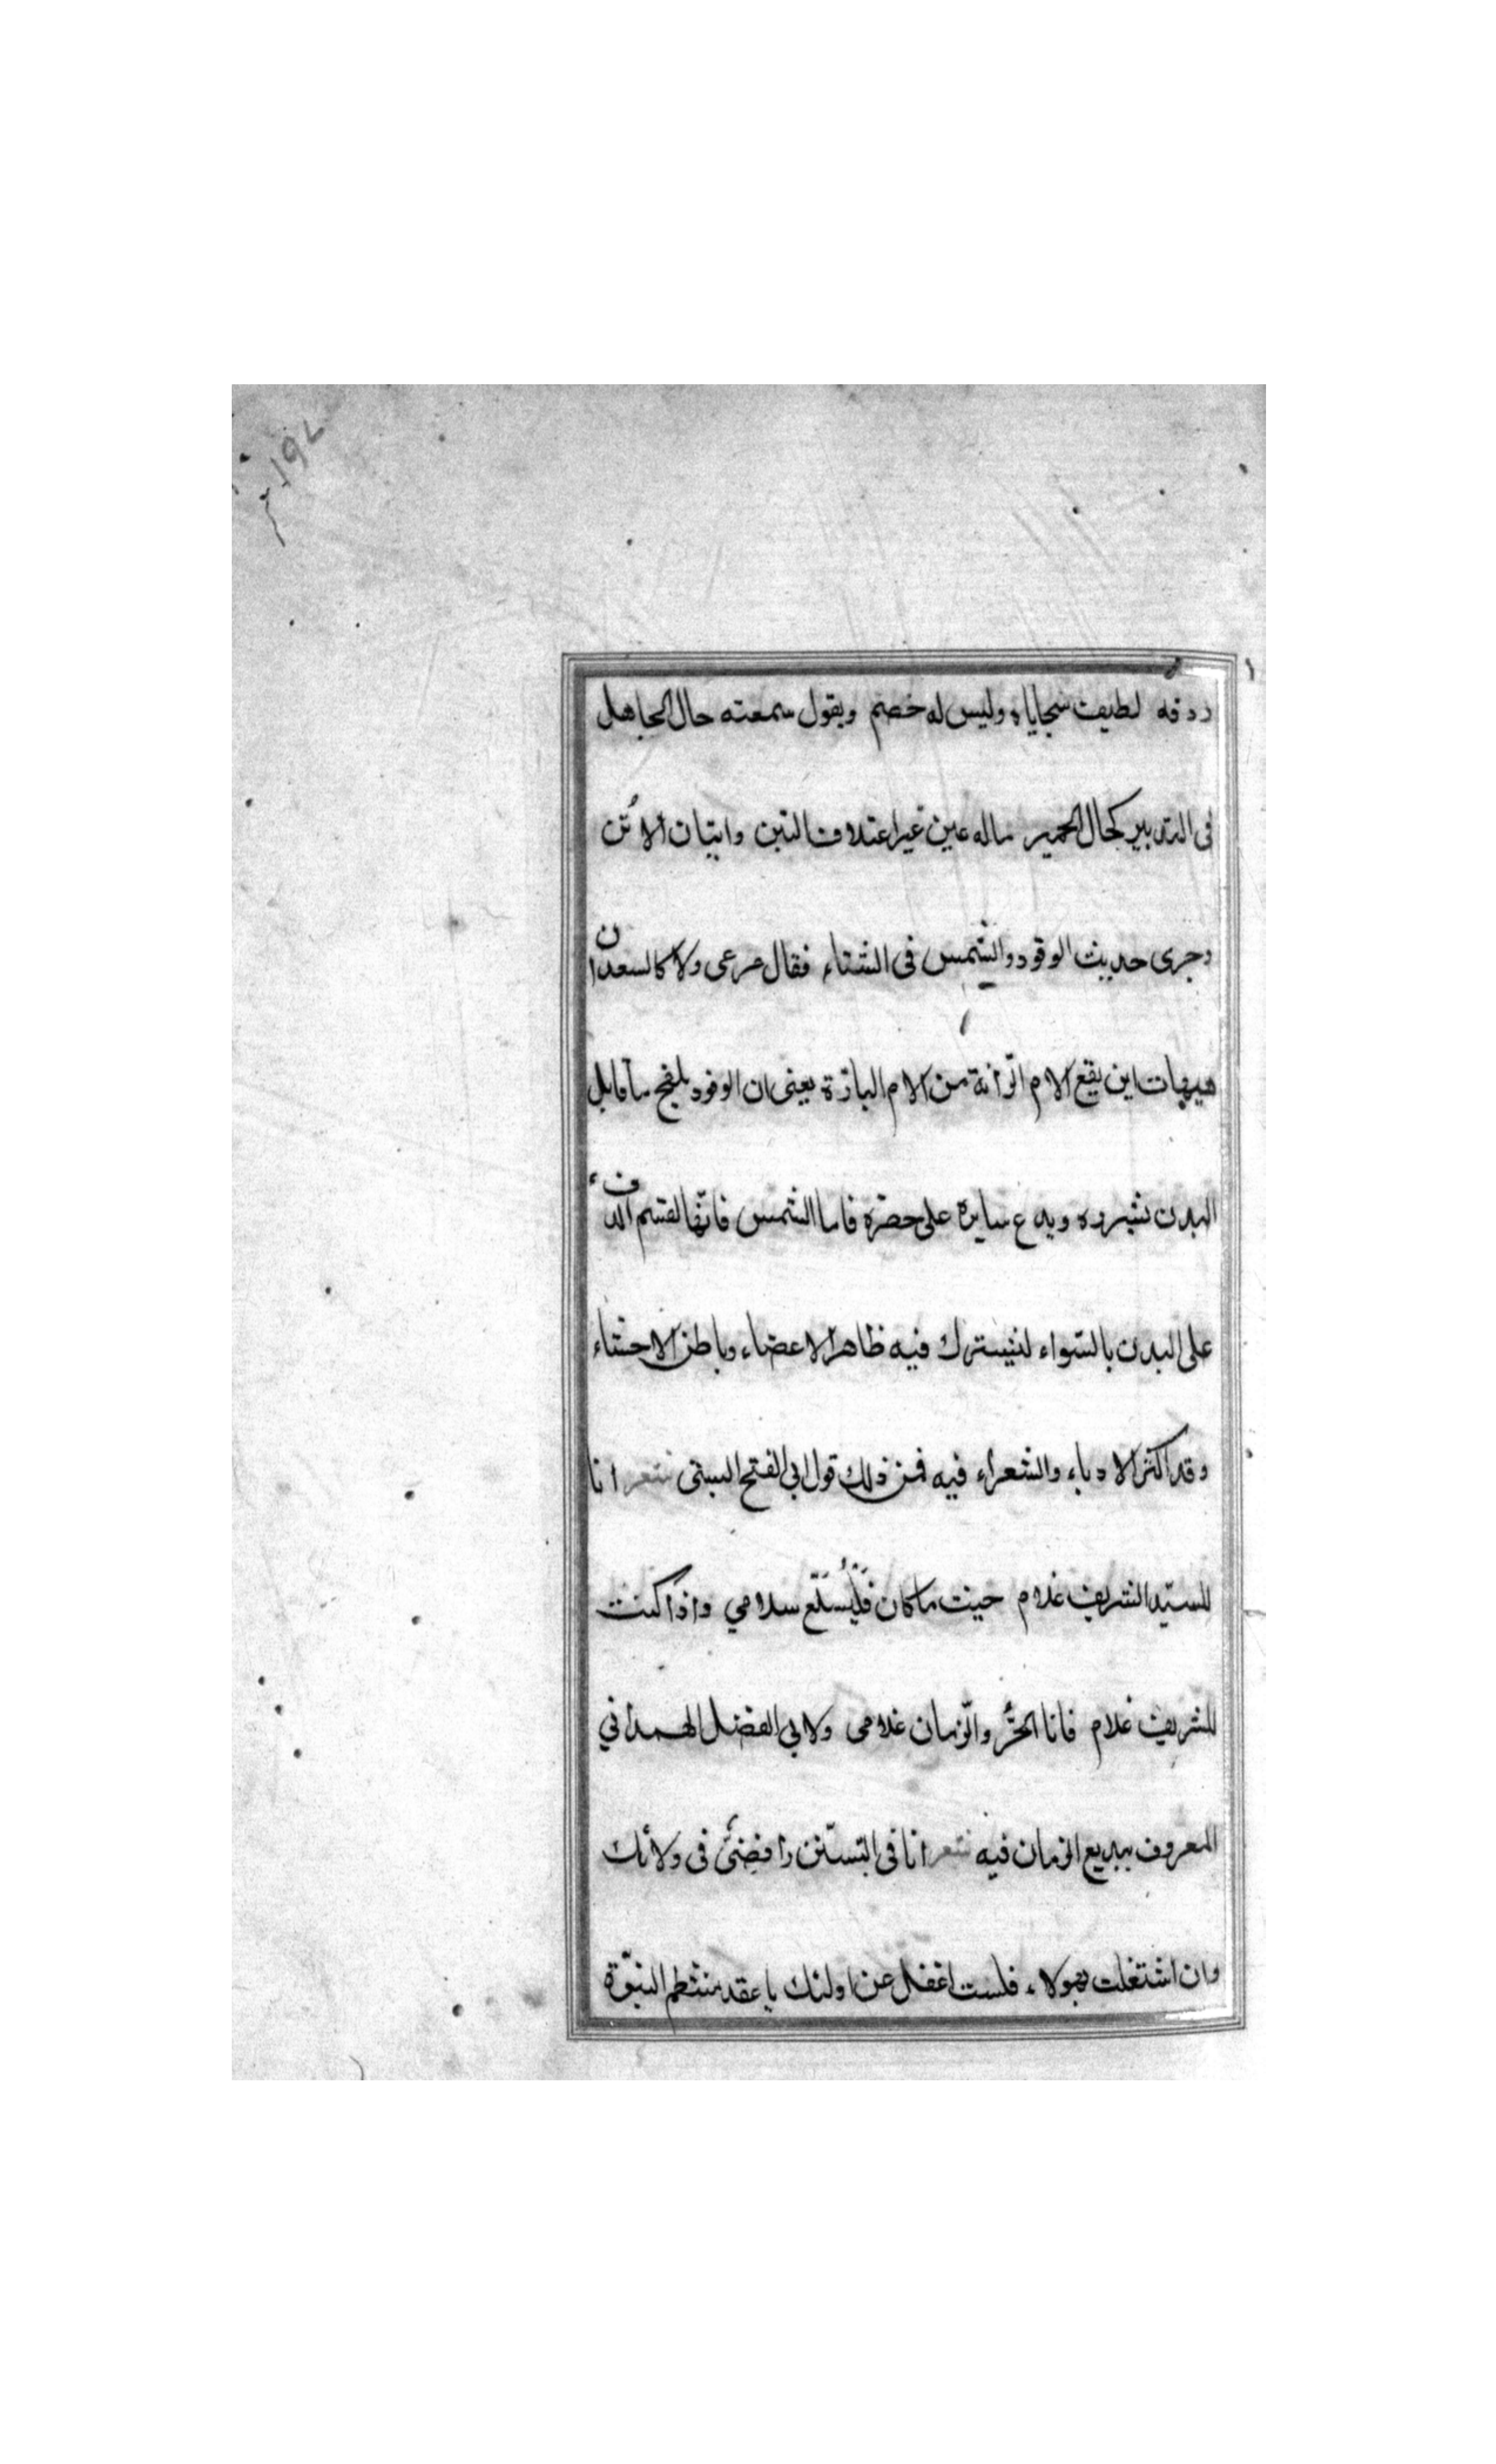 ردفه لطيف سجاياه وليس له خصم ويقول سمعته حال الجاهل
فى التدبير كحال الحمير ماله عين غير اعتلاف التبن واتيان الأُتن
وجرى حديث الوقود والشمس فى الشتاء فقال مرعى ولا كالسعدان
هيهات اين يقع الام الزانة من الام البازة يعنى ان الوقود يلفح ما قابل
البدن بشبروه ويدع سايره على خصره فاما الشمس فانّها لقسم الدفء
على البدن بالسّواء ليشترك فيه ظاهر الاعضاء وباطن الاحشاء
وقد اكثر الادباء والشعراء فيه فمن ذلك قول ابى الفتح البستى شعر انا
للسيّد الشريف غلام حيث ما كان فَلْيُبَلَّغ سلامي واذا كنت
للشريف غلام فانا الحرّ والزمان غلامى ولابي الفضل الهمذاني
المعروف ببديع الزمان فيه شعر انا فى التسنّن رافضىّ فى ولائك
وان اشتغلت بهولاء فلست اغفل عن اولئك يا عقد منتظم النبوّة